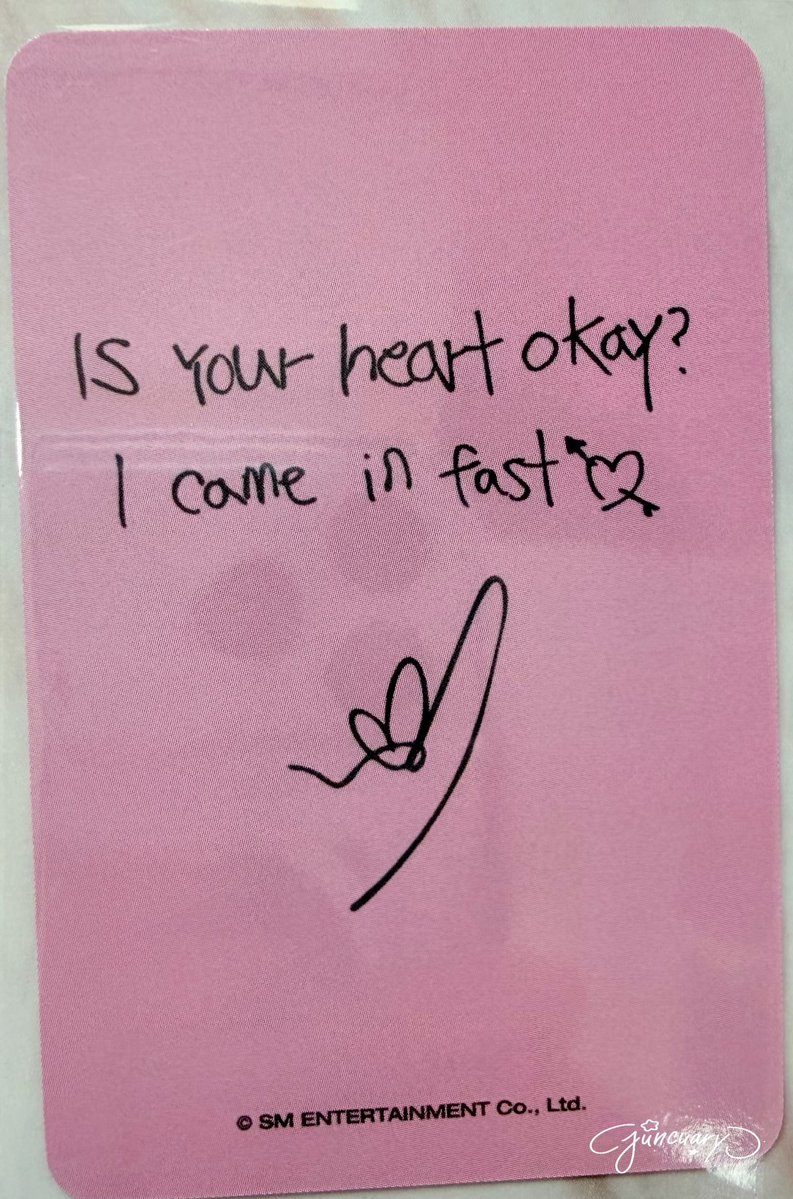 Is your heart okay?
I came in fast
© SM ENTERTAINMENT Co., Ltd.
juncuary